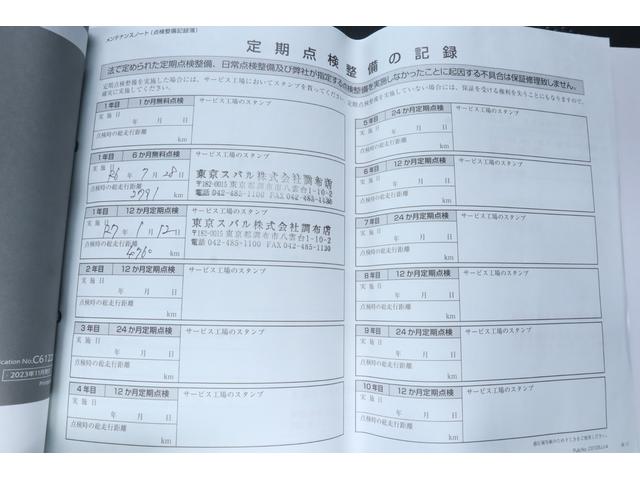 メンテナンスノート（点検整備記録簿）
定期点検整備の記録
法で定められた定期点検整備、日常点検整備及び弊社が指定する点検整備を実施しなかったことに起因する不具合は保証修理致しません。
定期点検整備を実施した場合には、サービス工場においてスタンプを貰ってください。
確実に実施してください。
定期点検整備を実施していない場合には、保証を受ける権利を失うことにもなりますので、
1年目 1か月無料点検 サービス工場のスタンプ
実施日
年 月 日
点検時の総走行距離
km
1年目 6か月無料点検 サービス工場のスタンプ
実施日
R6年7月28日
点検時の総走行距離
2791 km
東京スバル株式会社調布店
〒182-0015 東京都調布市八雲台1-10-2
電話 042-485-1100 FAX 042-485-1130
1年目 12か月定期点検 サービス工場のスタンプ
実施日
R7年1月12日
点検時の総走行距離
4760 km
東京スバル株式会社調布店
〒182-0015 東京都調布市八雲台1-10-2
電話 042-485-1100 FAX 042-485-1130
2年目 12か月定期点検 サービス工場のスタンプ
実施日
年 月 日
点検時の総走行距離
km
3年目 24か月定期点検 サービス工場のスタンプ
実施日
年 月 日
点検時の総走行距離
km
4年目 12か月定期点検 サービス工場のスタンプ
実施日
年 月 日
点検時の総走行距離
km
5年目 24か月定期点検 サービス工場のスタンプ
実施日
年 月 日
点検時の総走行距離
km
6年目 12か月定期点検 サービス工場のスタンプ
実施日
年 月 日
点検時の総走行距離
km
7年目 24か月定期点検 サービス工場のスタンプ
実施日
年 月 日
点検時の総走行距離
km
8年目 12か月定期点検 サービス工場のスタンプ
実施日
年 月 日
点検時の総走行距離
km
9年目 24か月定期点検 サービス工場のスタンプ
実施日
年 月 日
点検時の総走行距離
km
10年目 12か月定期点検 サービス工場のスタンプ
実施日
年 月 日
点検時の総走行距離
km
ication No.C612
2023年11月